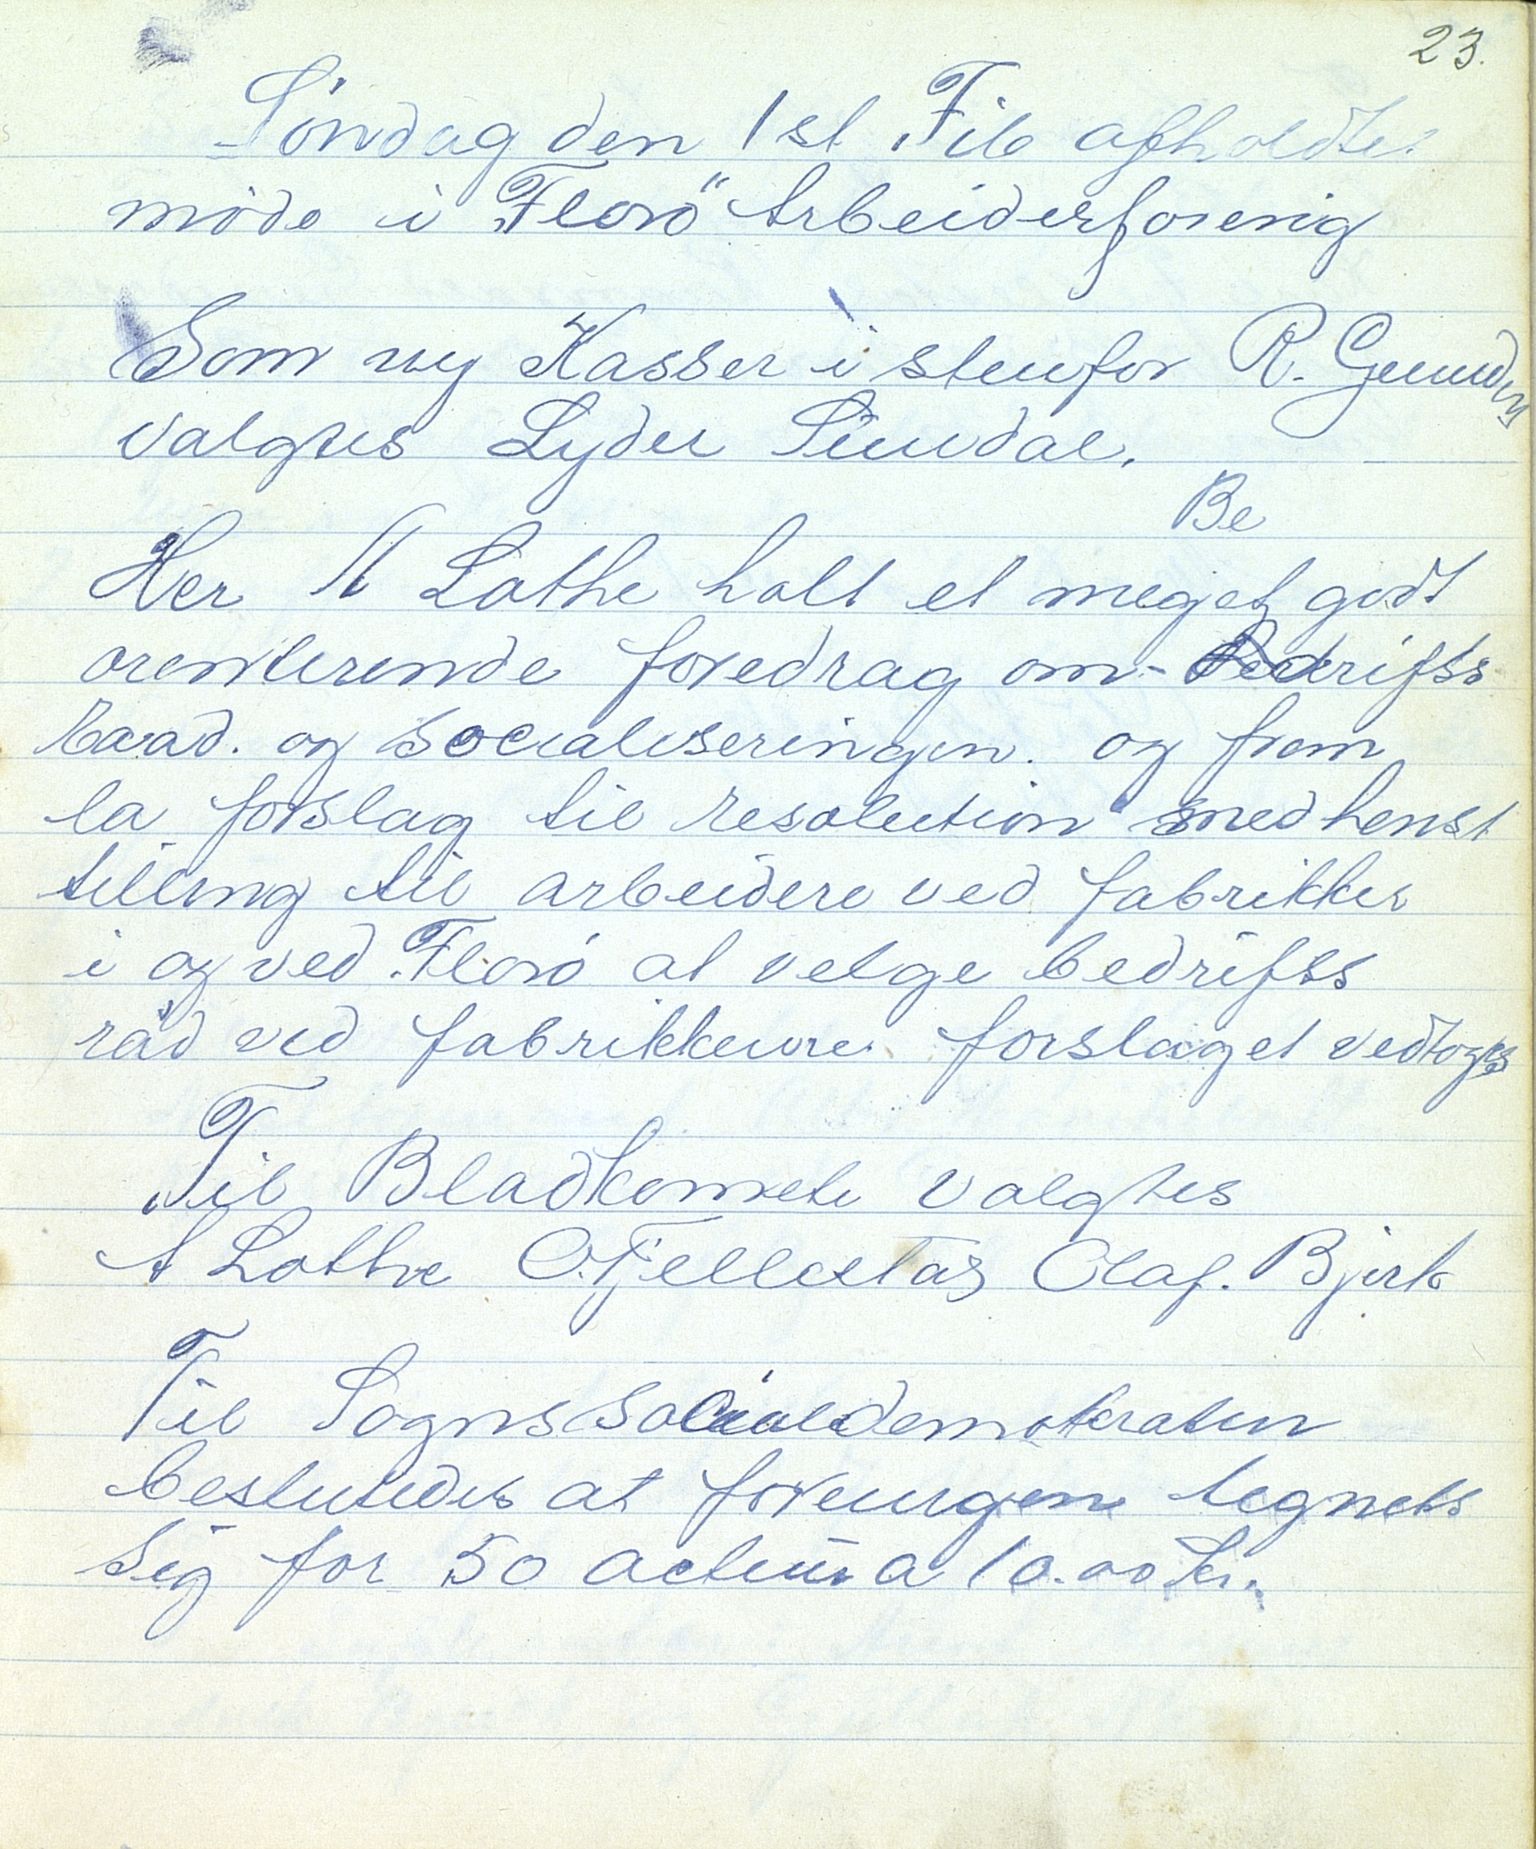 23.
Søndag den 1st Feb afholdtes
møde i "Florø" Arbeiderforenig
Som ny Kasser i stenfor R. Gunnders
valgtes Lyder Sundal.
Be
Her A Lothe holt et meget godt
orenterende foredrag om bedrifts
raad. og socialiseringen. og frem
la forslag til resolution med henst
tilling til arbeidere ved fabrikker
i og ved Florø at velge bedrifts
råd ved fabrikkerne. forslaget vedtoges
Til Bladkomete valgtes
A Lothe O. Fjellestad Olaf. Bjerk
Til Sogns socialdemokraten
besluttedes at foreningen tegnets
sig for 50 actier a 10.00 kr.